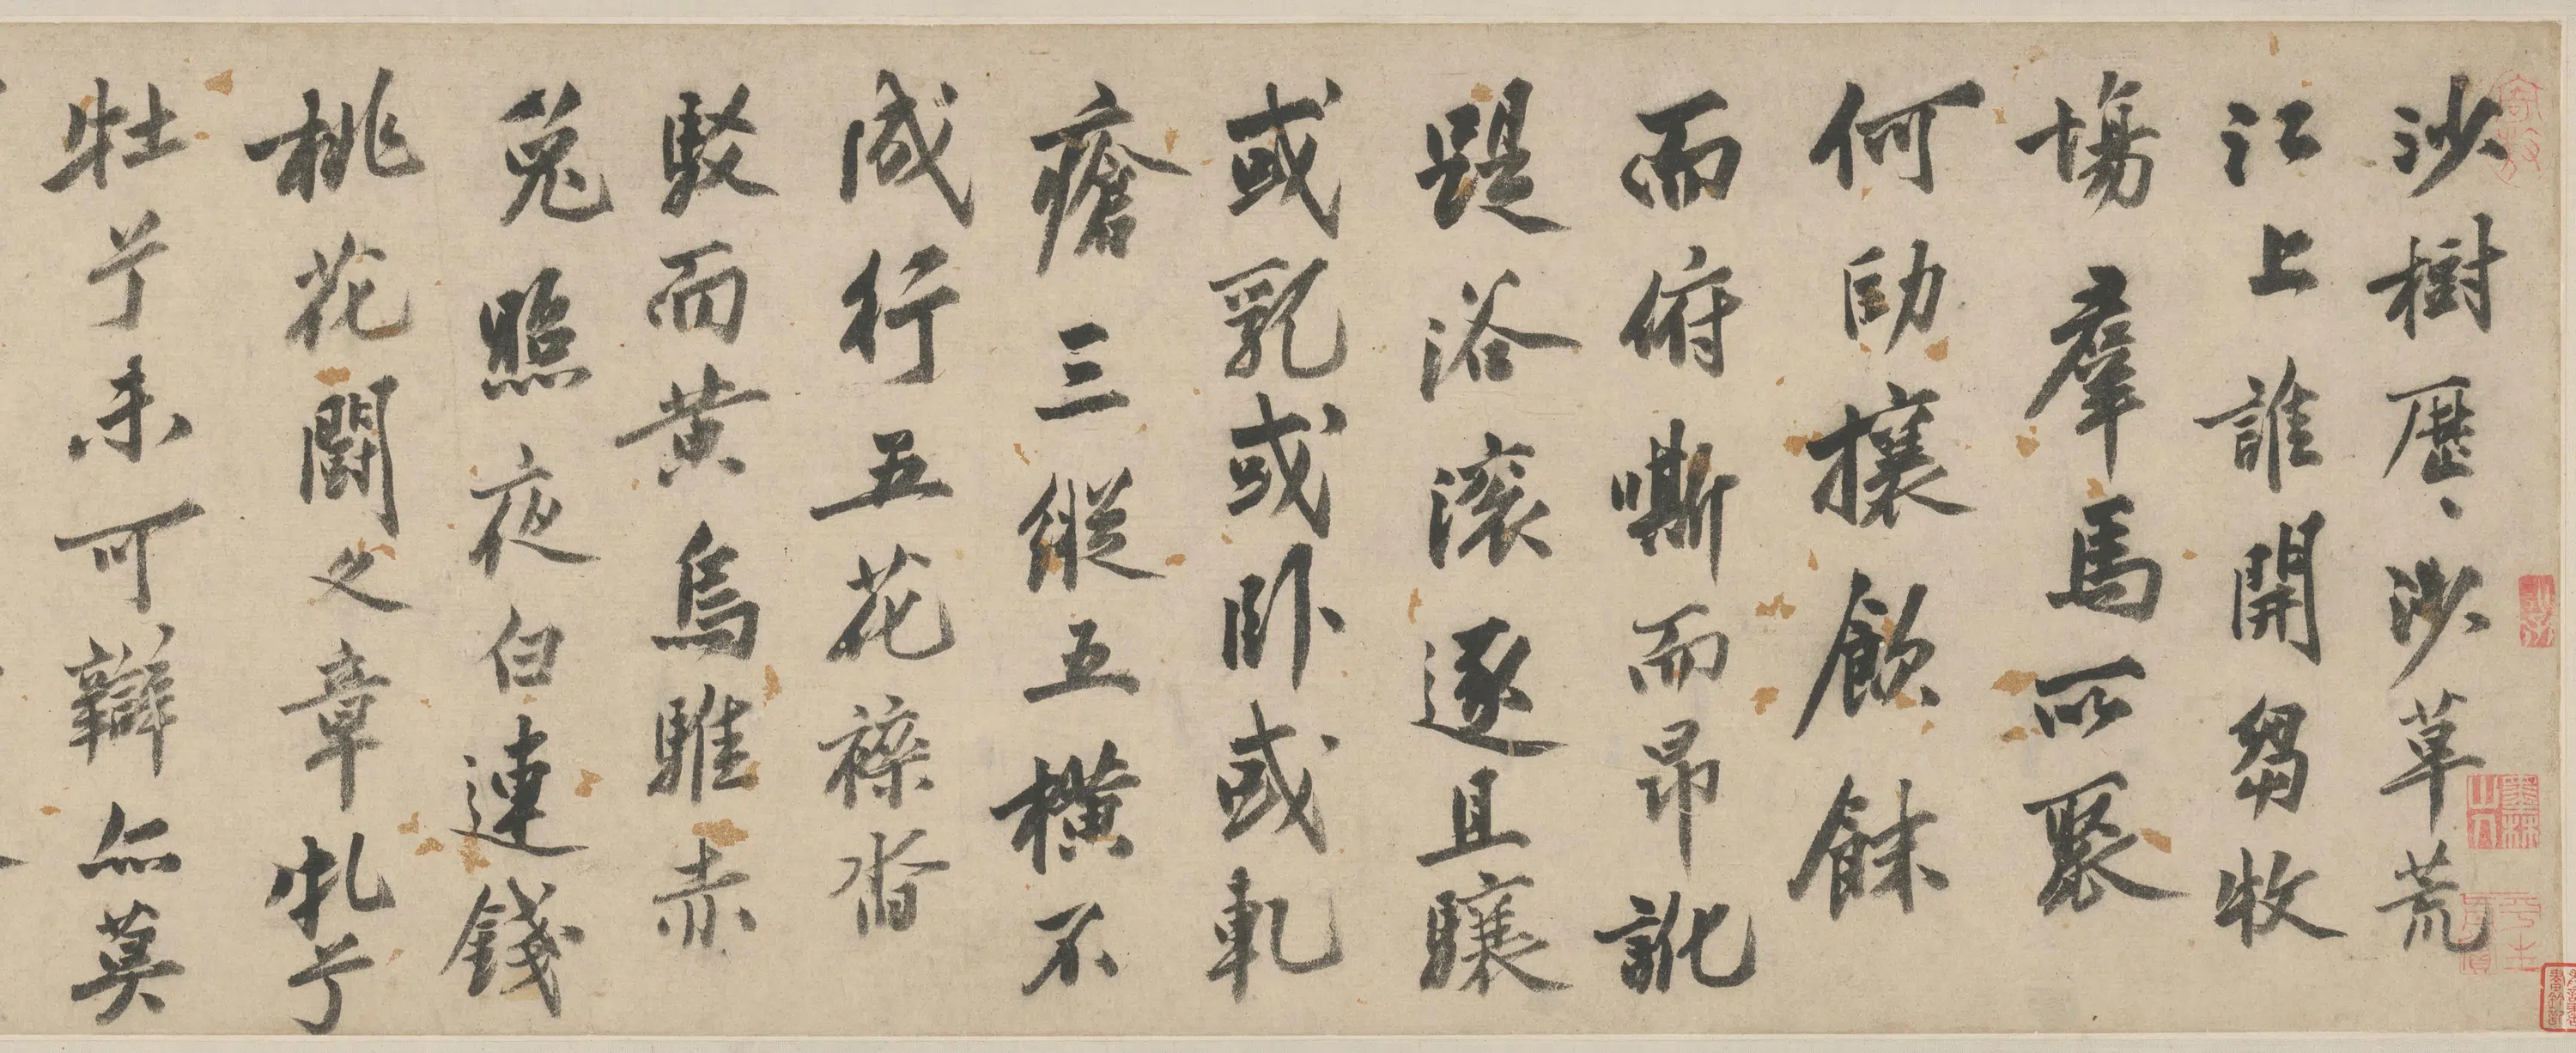 沙樹歷、沙草荒
江上誰開芻牧
場羣馬所聚
何勛攘飲餘
而俯嘶而昂訛
踶浴滾逐且驤
或乳或臥或軋
瘡三縱五橫不
成行五花襍沓
駁而黃烏騅赤
兔照夜白連錢
桃花闘之章牝兮
牡兮未可辯亦莫